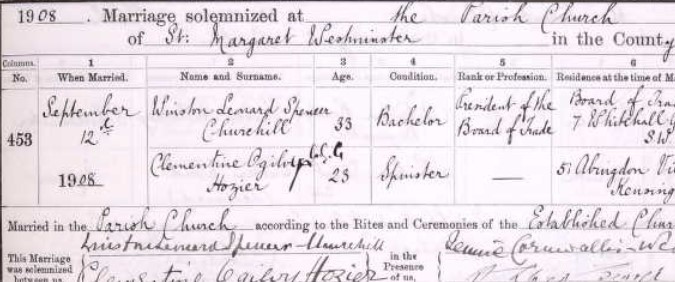 1908. Marriage solemnized at the Parish Church
of St: Margaret Westminster in the County
Columns 1 2 3 4 5 6
No. When Married. Name and Surname. Age. Condition. Rank or Profession. Residence at the time of M
September Winston Leonard Spencer President of the Board of Tra
453 12 Churchill 33 Bachelor Board of Trade 7 Whitehall G
S.W.
Clementine Ogilvy 51 Abingdon Vi
1908 Hozier 23 Spinster — Kensing
Married in the Parish Church according to the Rites and Ceremonies of the Established Chur
Winston Leonard Spencer Churchill Jennie Cornwallis-We
This Marriage in the
was solemnized Presence
between us, Clementine Ogilvy Hozier of us,